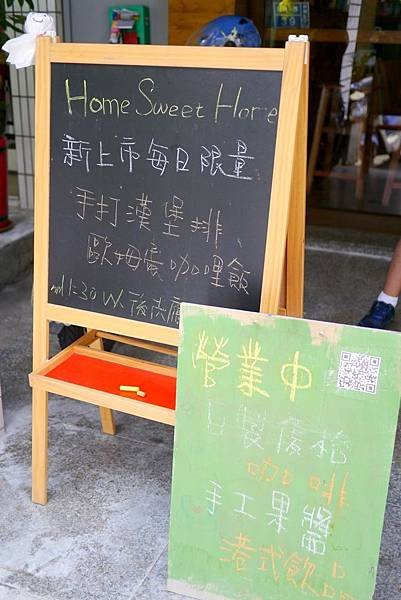 Home Sweet Home
新上市每日限量
手打漢堡排、
歐姆蛋咖哩飯
1:30
營業中
自製優格
咖啡
手工果醬
港式飲品